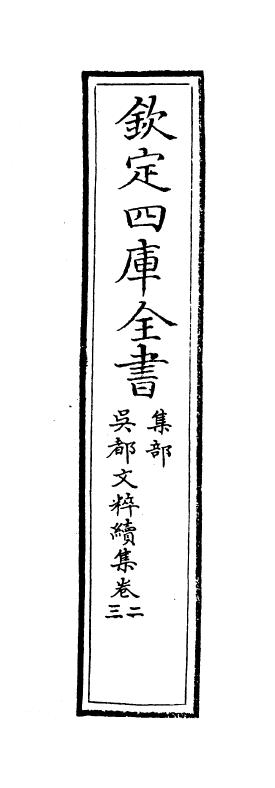 欽定四庫全書
集部
吳都文粹續集卷二三